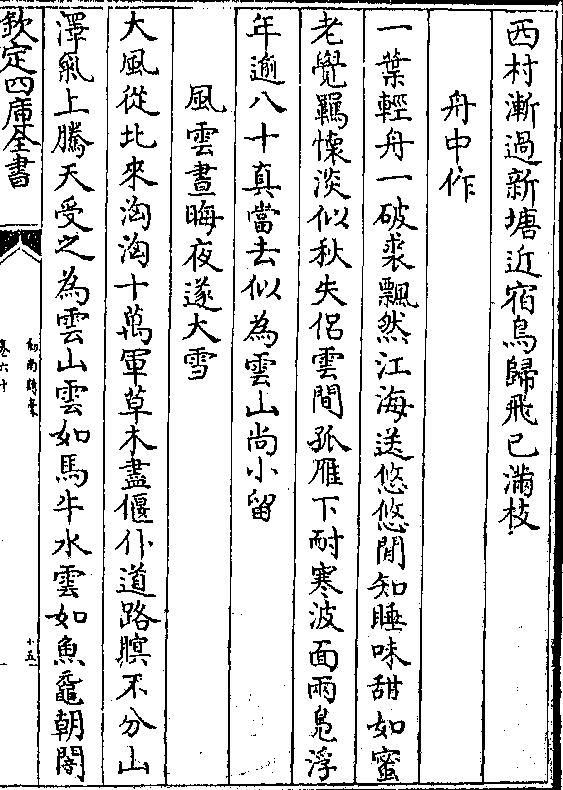 西村漸過新塘近宿鳥歸飛已滿枝
舟中作
一葉輕舟一破裘飄然江海送悠悠閒知睡味甜如蜜
老覺羈懐淡似秋失侣雲間孤雁下耐寒波面兩鳬浮
年逾八十真當去似為雲山尚小留
風雲晝晦夜遂大雪
大風從北來洶洶十萬軍草木盡偃仆道路瞑不分山
澤氣上騰天受之為雲山雲如馬牛水雲如魚黿朝闇
欽定四庫全書
劍南詩藁
卷六十
十五